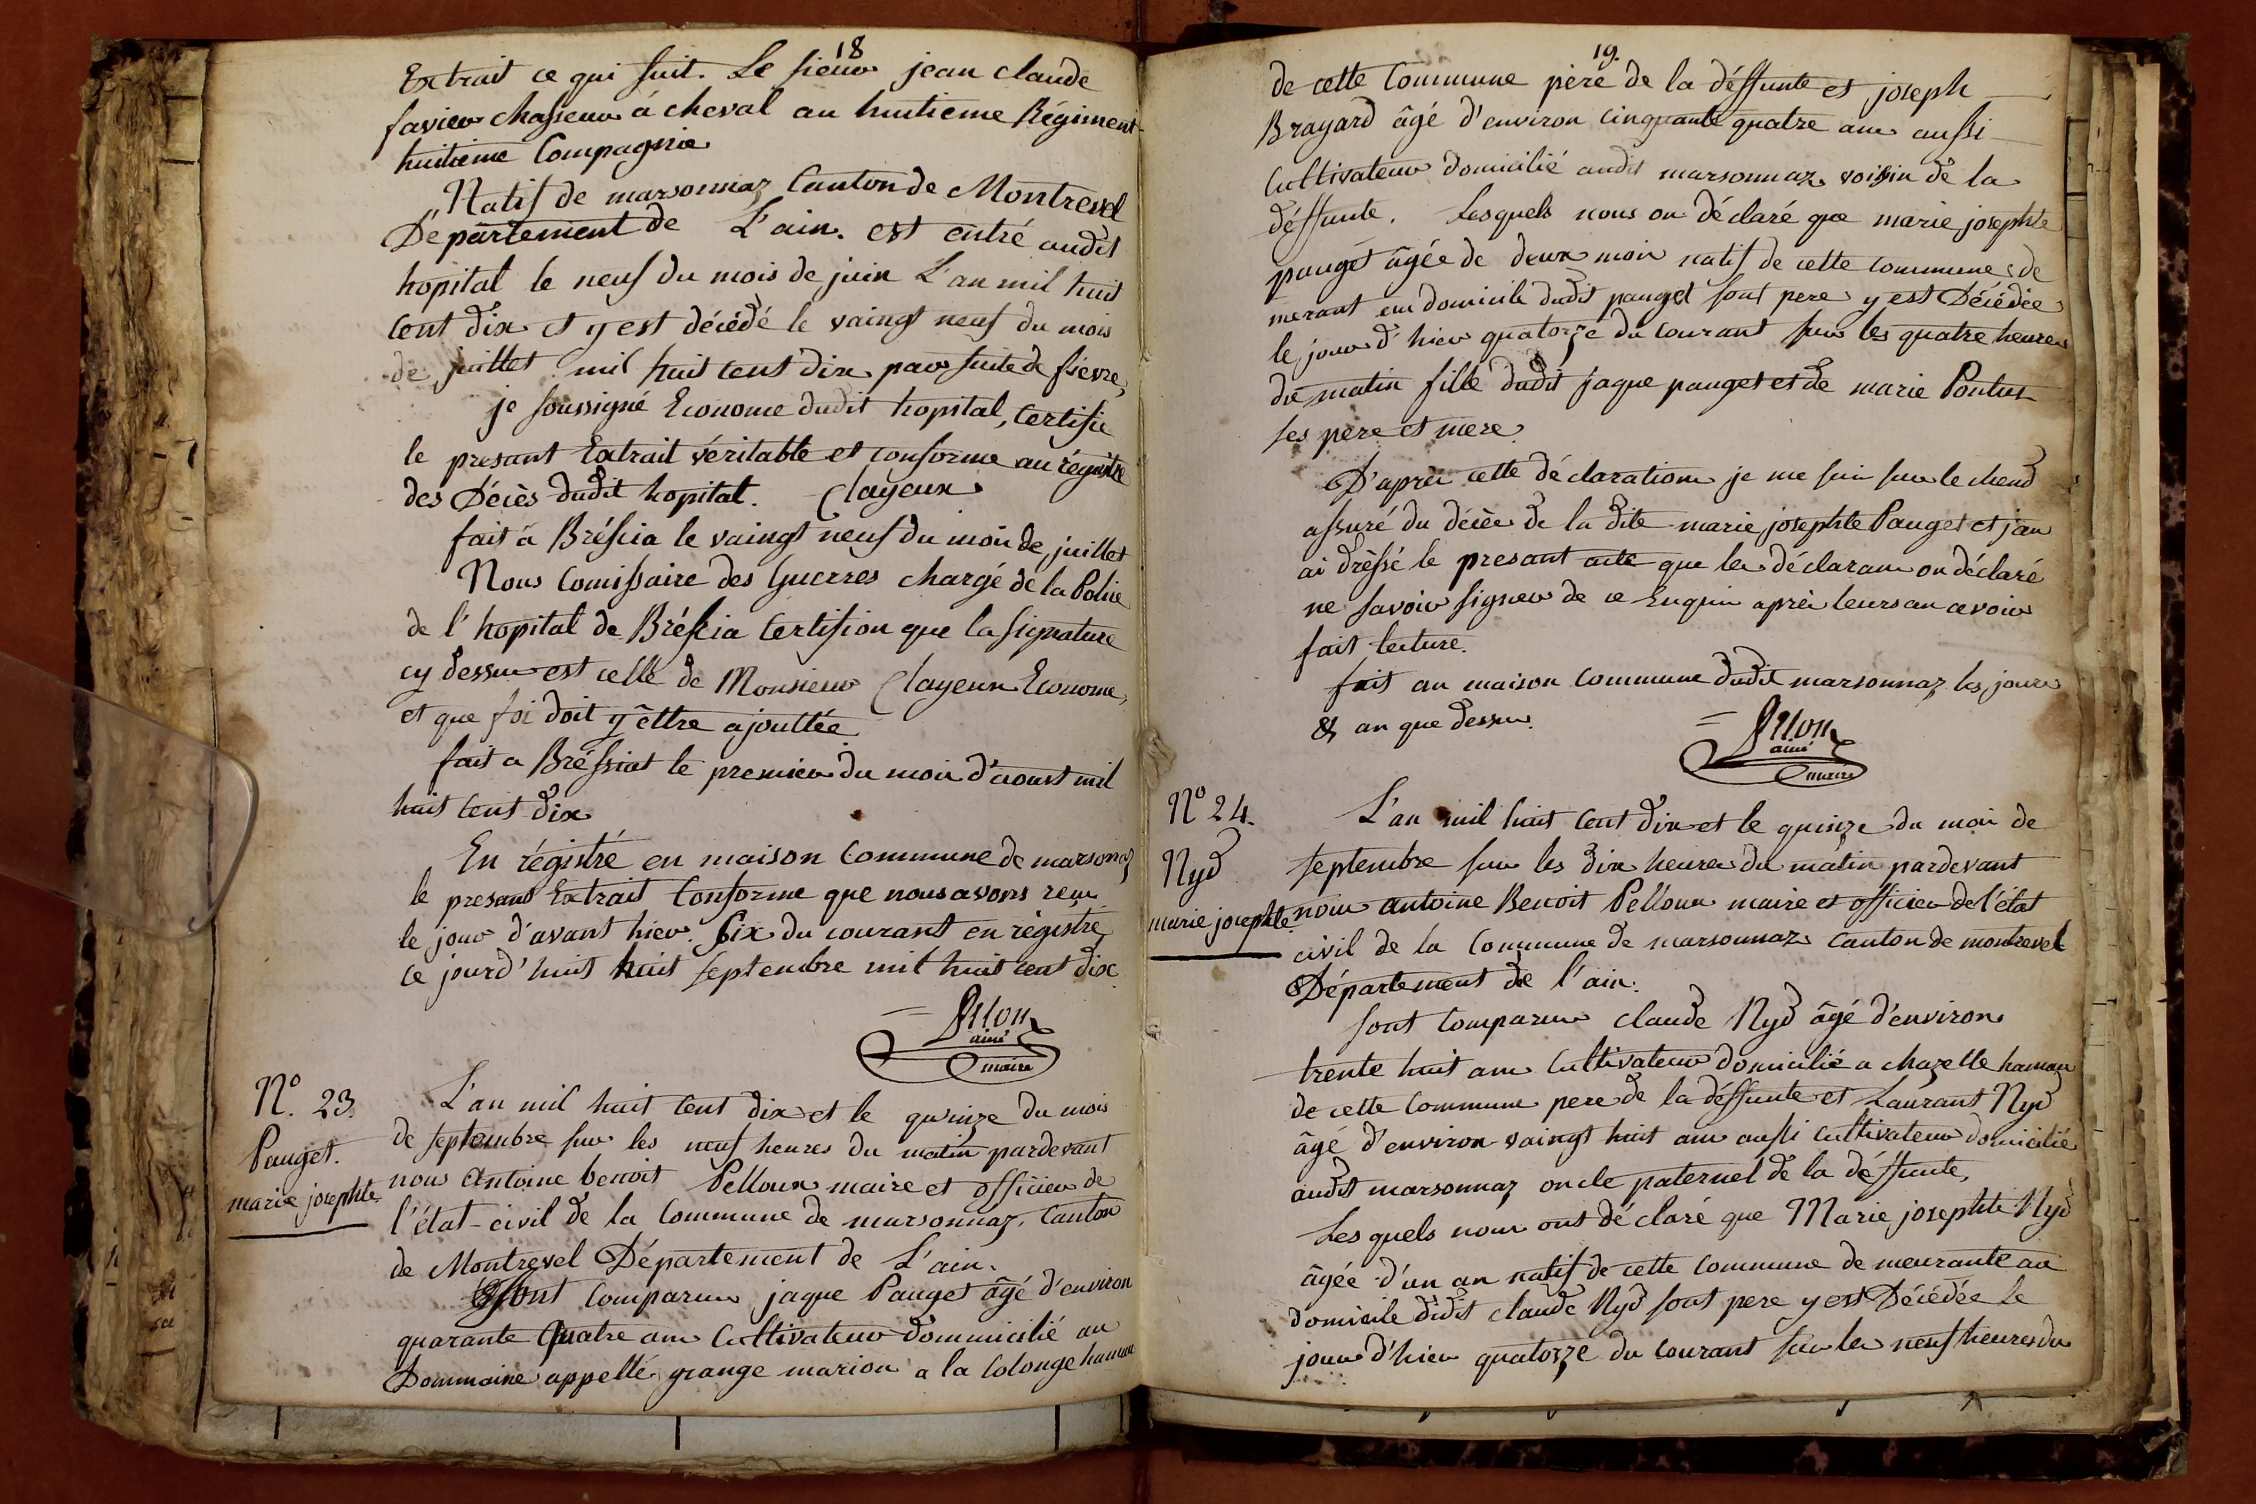 18
Extrait ce qui suit. Le sieur jean claude
favier chasseur á cheval au huitieme Régiment
huitieme Compagnie
Natif de marsonnaz Canton de Montrevel
Département de L'ain. est entré audit
hopital le neuf du mois de juin L'an mil huit
cent dix et y est décédé le vaingt neuf du mois
de juillet mil huit cent dix par suite de fievre,
je soussigné Econome dudit hopital, certifie
le presant Extrait véritable et conforme au régistre
des Décès dudit hopital. Clayeux
fait á Bréscia le vaingt neuf du mois de juillet
Nous Comissaire des Guerres chargé de la Police
de l'hopital de Bréscia Certifion que la signature
cy dessu est celle de Monsieur Clayeux Econome,
et que foi doit y êttre ajouttée
fait a Bréssiat le premier du moi d'aoust mil
huit cent dix
En régistré en maison Commune de marsonnaz
le presant Extrait Conforme que nous avons reçu
le jour d'avant hier. Six du courant en règistré
ce jourd'huit huit septembre mil huit cent dix
ainé
maire
No. 23.
Pauget.
marie josephte
L'an mil huit cent dix et le quinze du mois
de septembre sur les neuf heures du matin pardevant
nous Antoine benoit Pelloux maire et officier de
l'état-civil de la Commune de marsonnaz, Canton
de Montrevel Département de L'ain.
Sont Comparu jaque Pauget âgé d'environ
quarante quatre an Cultivateur dommicilié au
Dommaine appellé grange marion a la Colonge hamau
19.
de cette Commune père de la déffunte et joseph
Brayard âgé d'environ cinquante quatre an aussi
Cultivateur domicilié audit marsonnaz voisin de la
déffunte. Lesquels nous on déclaré que marie josephte
pauget âgée de deux moi natif de cette commune de
merant au domicile dudit pauget sont pere y est Décédée
le jour d'hier quatorze du courant sur les quatre heures
du matin fille dudit jaque pauget et de marie Pontus
ses père et mere.
D'après cette déclaration je me sui sur le chend
assuré du décès de la dite marie josephte Pauget et j'an
ai dréssé le presant acte que les déclaran on déclaré
ne savoir signer de ce Enquin aprèi leurs an avoir
fait lecture.
fait an maison commune dudit marsonnaz les jour
& an que dessu.
ainé
maire
No 24.
Nyd
marie josephte
L'an mil huit Cent dix et le quinze du moi de
septembre sur les dix heure du matin pardevant
nou antoine Benoit Pelloux maire et officier de l'état
civil de la Commune de marsonnaz canton de montrevel
Département de l'ain.
sont Comparu claude Nyd âgé d'environ
trente huit an Cultivateur domicilié a chazelle hamau
de cette Commune pere de la déffunte et Laurant Nyd
âgé d'environ vaingt huit an aussi cultivateur domicilié
audit marsonnaz oncle paternel de la déffunte,
Lesquels nou ont déclaré que Marie josephte Nyd
âgée d'un an natif de cette commune de meurante au
domicile dudit claude Nyd sont pere y est Décédée le
jour d'hier quatorze du courant sur les neuf heures du